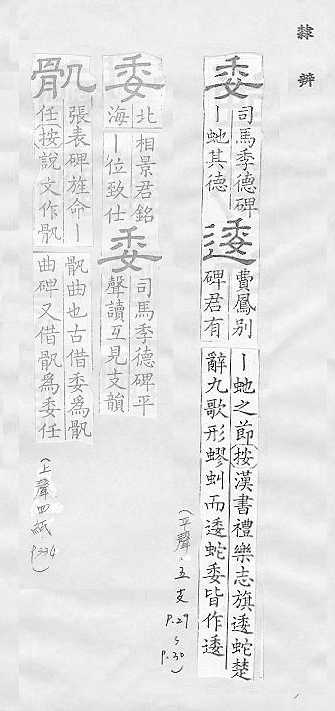 隸辨
委
司馬季德碑
｜虵其德
逶
費鳳別
碑君有
｜虵之節按漢書禮樂志旗逶蛇楚
辭九歌形蟉虯而逶蛇委皆作逶
(平聲．五支 P.29～P.30)
委
北
海
相景君銘
｜位致仕
委
司馬季德碑平
聲讀互見支韻
骩
張表碑旌命｜
任按說文作骩
骩曲也古借委爲骩
曲碑又借骩爲委任
(上聲四紙